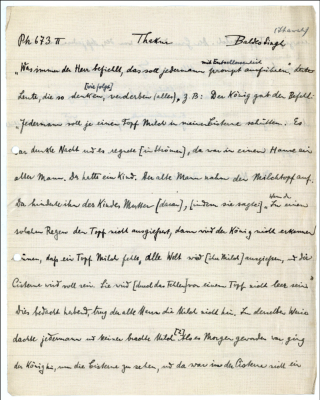 (Thavet)
Ph 673 II Thakur Balko Singh
mit Entschlossenheit
"Was immer der Herr befiehlt, das soll jedermann prompt ausführen",
[wie folgt]
Leute, die so denken, verderben [alles], z. B: Der König gab den Befehl
"Jedermann soll je einen Topf Milch in meine Zisterne schütten. Es
war dunkle Nacht und es regnete [in Strömen], da war in einem Hause ein
alter Mann. Er hatte ein Kind. Der alte Mann nahm den Milchtopf auf.
Da hinderte ihn des Kindes Mutter [daran], [indem sie sagte] "Du in einem
solchen Regen den Topf nicht ausgiessest, dann wird der König nicht erkennen
können, dass ein Topf Milch fehle, alle Welt wird [die Milch] ausgiessen, und die
Cisterne wird voll sein. Sie wird [durch das Fehlen] von einem Topf nicht leer sein"
Dies bedacht habend, trug der alte Mann die Milch nicht hin. In derselben Weise
dachte jedermann und keiner brachte Milch. Als es Morgen geworden war ging
der König hin, um die Cisterne zu sehen, und da war in der Cisterne nicht ein